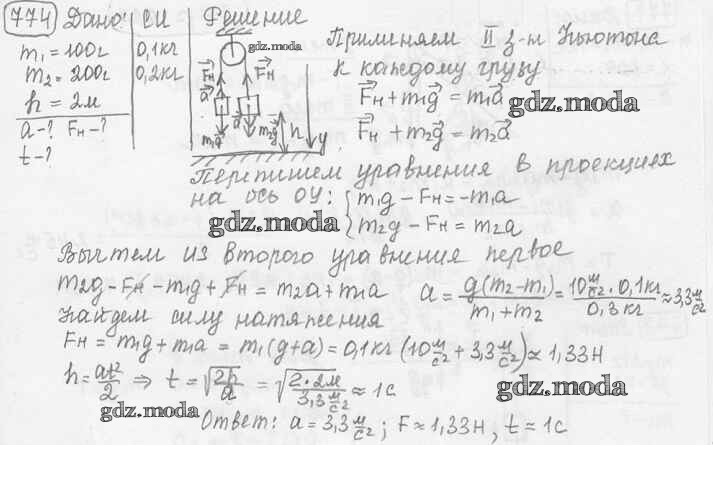 774 Дано СИ Решение
m₁=100г 0,1кг
m₂=200г 0,2кг
h = 2м
a-? Fн-?
t-?
gdz.moda
Fн Fн
a
a
m₁g m₂g h y
Применяем II з-н Ньютона
к каждому грузу
Fн + m₁g = m₁a
gdz.moda
Fн + m₂g = m₂a
Перепишем уравнения в проекциях
на ось OY: { m₁g - Fн = -m₁a
m₂g - Fн = m₂a
gdz.moda
Вычтем из второго уравнения первое
m₂g - Fн - m₁g + Fн = m₂a + m₁a a = g(m₂-m₁)/m₁+m₂ = 10 м/с² · 0,1кг/0,3кг ≈ 3,3 м/с²
Найдем силу натяжения
Fн = m₁g + m₁a = m₁(g+a) = 0,1кг (10 м/с² + 3,3 м/с²) ≈ 1,33Н
h = at²/2 ⇒ t = √2h/a = √2·2м/3,3 м/с² ≈ 1с
gdz.moda
gdz.moda
Ответ: a = 3,3 м/с²; F ≈ 1,33Н, t ≈ 1с